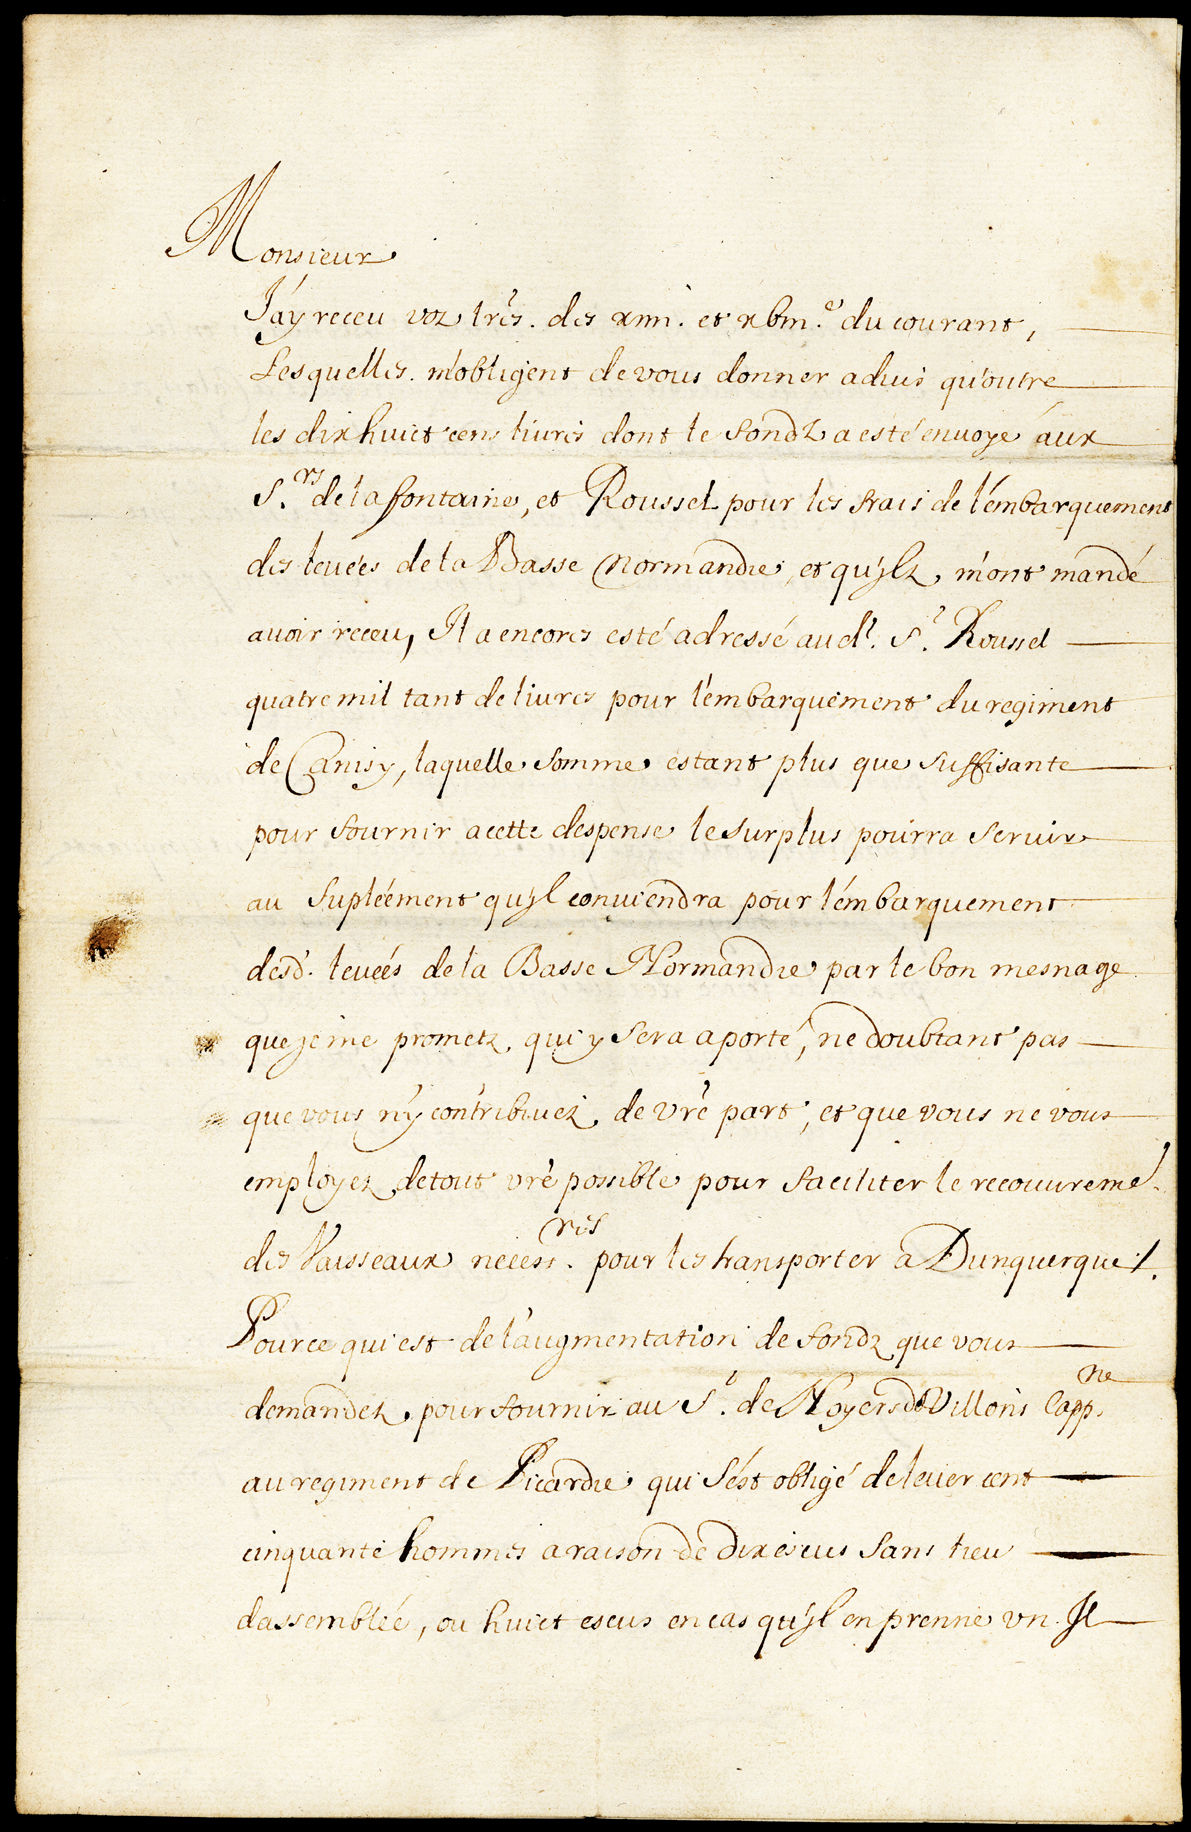 Monsieur
J'ay receu voz lrẽs. des xiiii. et xbiii.e du courant,
Lesquelles. m'obligent de vous donner aduis qu'outre
les dix huict cens liures dont le fondz a esté enuoyé aux
S.rs de la fontaine, et Roussel pour les frais de l'embarquement
des leuées de la Basse Normandie, et qu'ylz, m'ont mandé
auoir receu, Il a encores esté adressé aud.t S.r Roussel
quatre mil tant de liures pour l'embarquement du regiment
de Canisy, laquelle somme estant plus que suffisante
pour fournir a cette despense le surplus pourra seruir
au supléement qu'yl conuiendra pour l'embarquement
desd. leuées de la Basse Normandie par le bon mesnage
que je me prometz, qui y sera aporté, ne doubtant pas
que vous n'y contribuez, de vrẽ part, et que vous ne vous
employez de tout vrẽ possible pour faciliter le recouuremẽ.
des Vaisseaux necessres. pour les transporter a Dunquerque /.
Pour ce qui est de l'augmentation de fondz que vous
demandez, pour fournir au S.r de Noyers de Villons Capp.ne
au regiment de Picardie qui s'est obligé de leuer cent
cinquante hommes a raison de dix escus sans lieu
d'assemblée, ou huict escus en cas qu'yl en prenne vn. Il